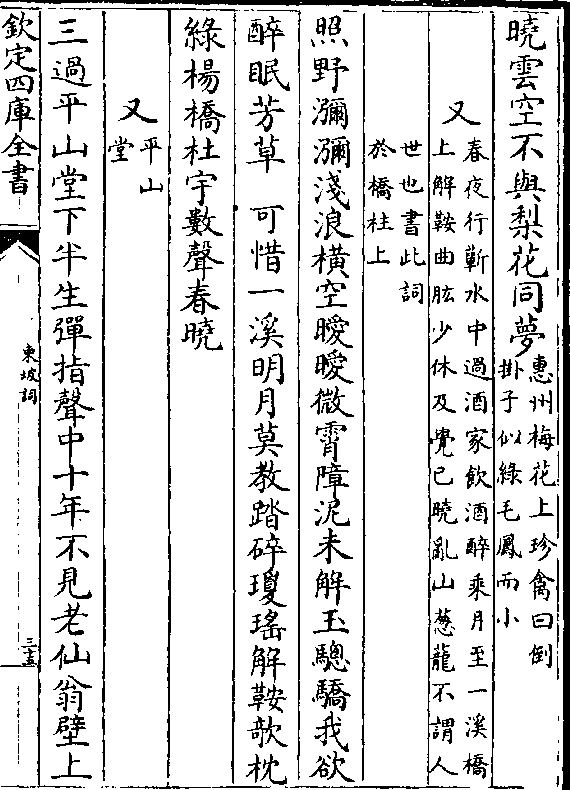 曉雲空不與梨花同夢惠州梅花上珍禽曰倒
掛子似綠毛鳳而小
又春夜行蘄水中過酒家飲酒醉乘月至一溪橋
上解鞍曲肱少休及覺已曉亂山蔥蘢不謂人
世也書此詞
於橋柱上
照野瀰瀰淺浪橫空曖曖微霄障泥未解玉驄驕我欲
醉眠芳草 可惜一溪明月莫教踏碎瓊瑤解鞍欹枕
綠楊橋杜宇數聲春曉
又平山
堂
三過平山堂下半生彈指聲中十年不見老仙翁壁上
欽定四庫全書
東坡詞